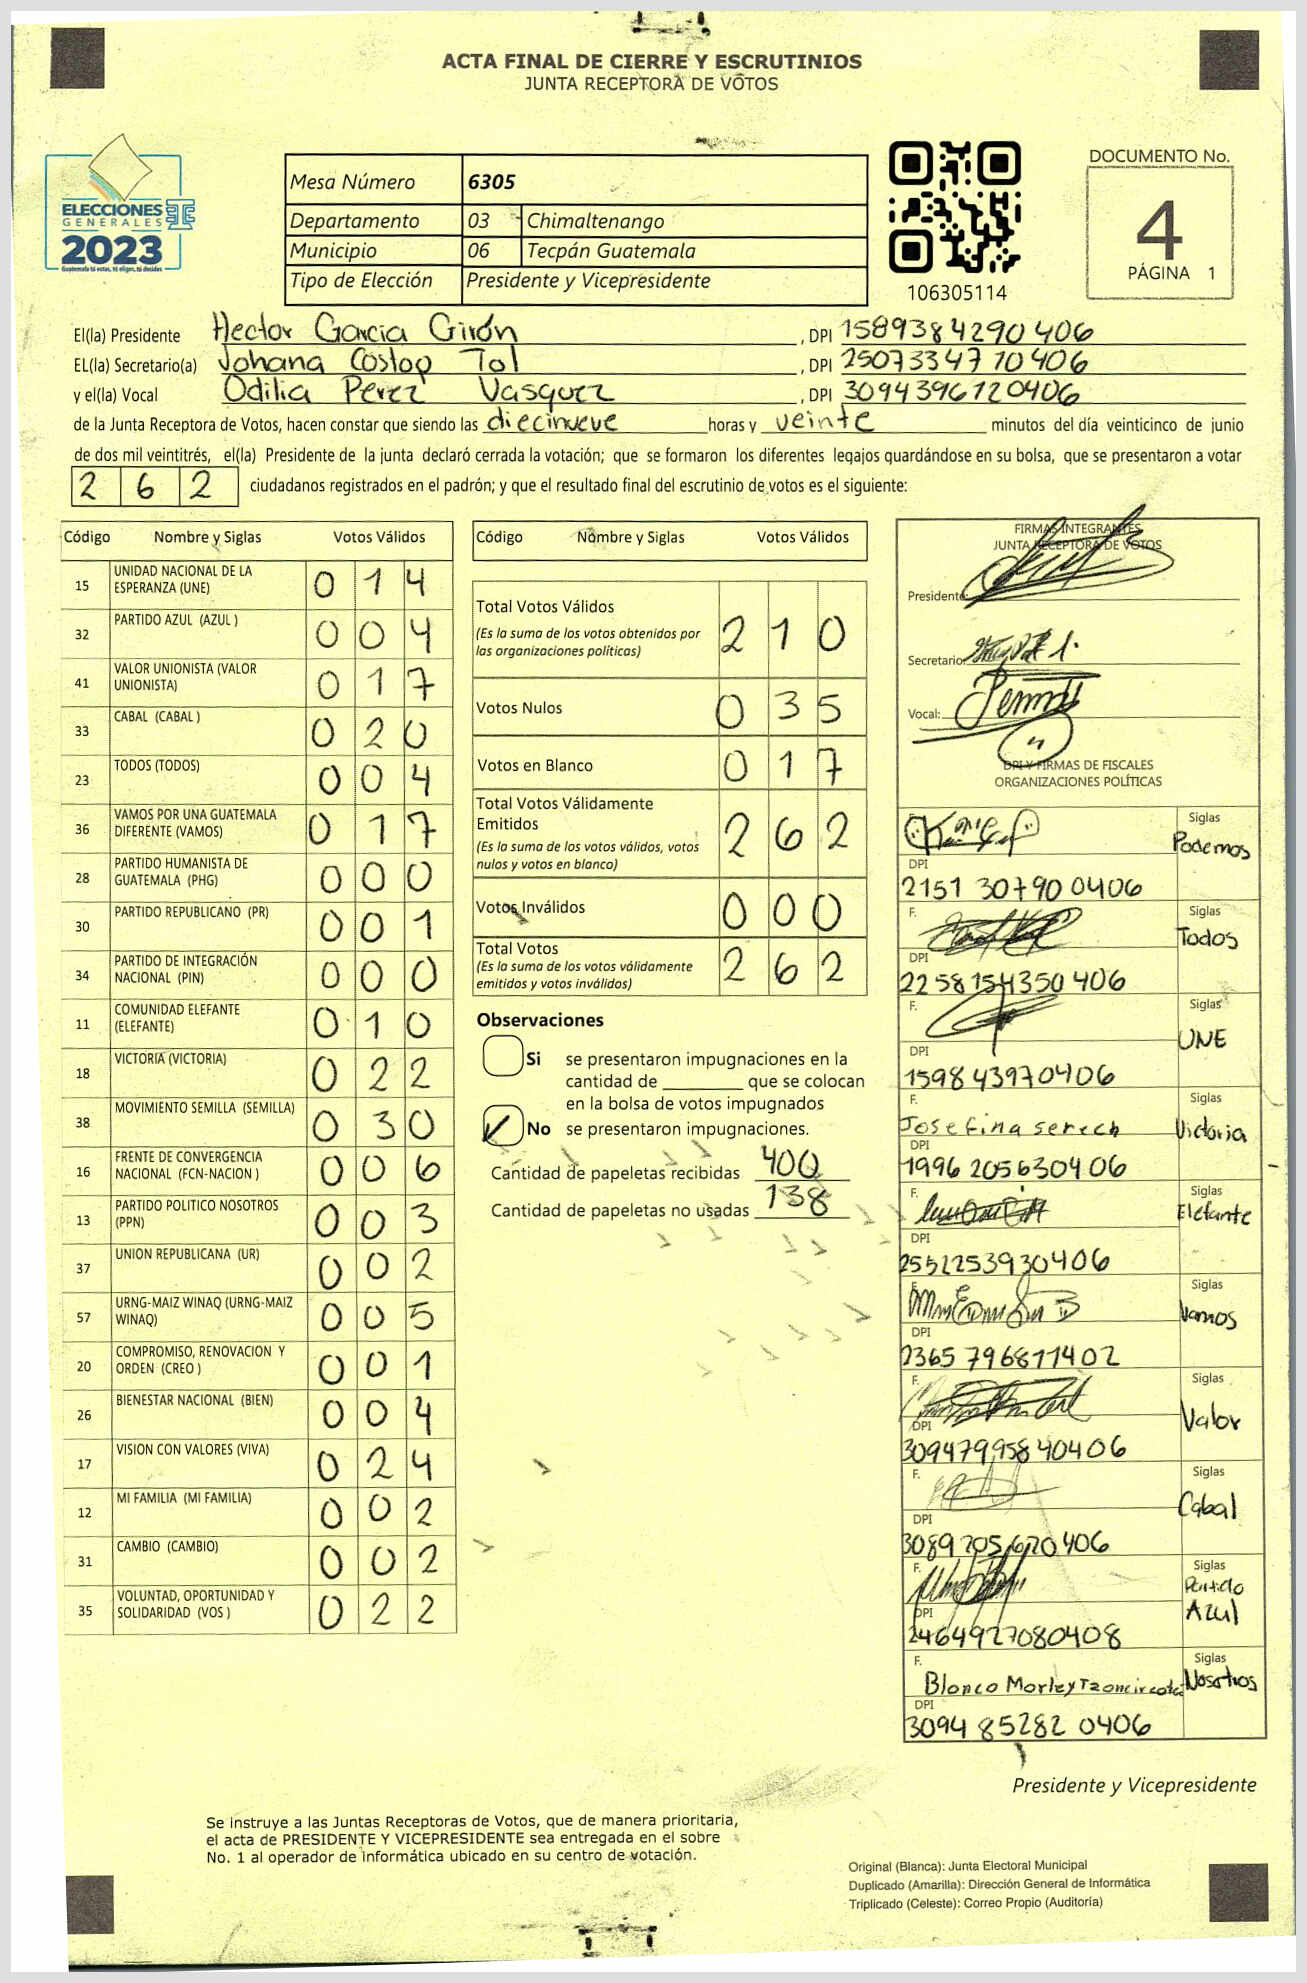 ACTA FINAL DE CIERRE Y ESCRUTINIOS
JUNTA RECEPTORA DE VOTOS
ELECCIONES
GENERALES
2023
Guatemala tú votas, tú eliges, tú decides
Mesa Número 6305
Departamento 03 Chimaltenango
Municipio 06 Tecpán Guatemala
Tipo de Elección Presidente y Vicepresidente
106305114
DOCUMENTO No.
4
PÁGINA 1
El(la) Presidente Hector Garcia Girón, DPI 1589384290406
EL(la) Secretario(a) Johana Costop Tol, DPI 2507334710406
y el(la) Vocal Odilia Perez Vasquez, DPI 3094396120406
de la Junta Receptora de Votos, hacen constar que siendo las diecinueve horas y veinte minutos del día veinticinco de junio
de dos mil veintitrés, el(la) Presidente de la junta declaró cerrada la votación; que se formaron los diferentes legajos guardándose en su bolsa, que se presentaron a votar
262 ciudadanos registrados en el padrón; y que el resultado final del escrutinio de votos es el siguiente:
Código Nombre y Siglas Votos Válidos
15 UNIDAD NACIONAL DE LA ESPERANZA (UNE) 014
32 PARTIDO AZUL (AZUL ) 004
41 VALOR UNIONISTA (VALOR UNIONISTA) 017
33 CABAL (CABAL ) 020
23 TODOS (TODOS) 004
36 VAMOS POR UNA GUATEMALA DIFERENTE (VAMOS) 017
28 PARTIDO HUMANISTA DE GUATEMALA (PHG) 000
30 PARTIDO REPUBLICANO (PR) 001
34 PARTIDO DE INTEGRACIÓN NACIONAL (PIN) 000
11 COMUNIDAD ELEFANTE (ELEFANTE) 010
18 VICTORIA (VICTORIA) 022
38 MOVIMIENTO SEMILLA (SEMILLA) 030
16 FRENTE DE CONVERGENCIA NACIONAL (FCN-NACION ) 006
13 PARTIDO POLITICO NOSOTROS (PPN) 003
37 UNION REPUBLICANA (UR) 002
57 URNG-MAIZ WINAQ (URNG-MAIZ WINAQ) 005
20 COMPROMISO, RENOVACION Y ORDEN (CREO ) 001
26 BIENESTAR NACIONAL (BIEN) 004
17 VISION CON VALORES (VIVA) 024
12 MI FAMILIA (MI FAMILIA) 002
31 CAMBIO (CAMBIO) 002
35 VOLUNTAD, OPORTUNIDAD Y SOLIDARIDAD (VOS ) 022
Código Nombre y Siglas Votos Válidos
Total Votos Válidos 210
(Es la suma de los votos obtenidos por
las organizaciones políticas)
Votos Nulos 035
Votos en Blanco 017
Total Votos Válidamente
Emitidos 262
(Es la suma de los votos válidos, votos
nulos y votos en blanco)
Votos Inválidos 000
Total Votos 262
(Es la suma de los votos válidamente
emitidos y votos inválidos)
Observaciones
Si se presentaron impugnaciones en la
cantidad de ________ que se colocan
en la bolsa de votos impugnados
No se presentaron impugnaciones.
Cantidad de papeletas recibidas 400
Cantidad de papeletas no usadas 138
FIRMAS INTEGRANTES
JUNTA RECEPTORA DE VOTOS
Presidente:
Secretario:
Vocal:
DPI Y FIRMAS DE FISCALES
ORGANIZACIONES POLÍTICAS
Siglas Podemos
DPI
2151 30790 0406
F. Siglas Todos
DPI
2258154350406
F. Siglas UNE
DPI
1598 43970406
F. Josefina serech Siglas Victoria
DPI
1996 205630406
F. Siglas Elefante
DPI
2551253930406
F. Siglas Vamos
DPI
2365 796811402
F. Siglas Valor
DPI
3094799584 0406
F. Siglas Cabal
DPI
3089205620406
F. Siglas Partido Azul
DPI
2464927080408
F. Siglas Nosotros
DPI
3094 85282 0406
Presidente y Vicepresidente
Se instruye a las Juntas Receptoras de Votos, que de manera prioritaria,
el acta de PRESIDENTE Y VICEPRESIDENTE sea entregada en el sobre
No. 1 al operador de informática ubicado en su centro de votación.
Original (Blanca): Junta Electoral Municipal
Duplicado (Amarilla): Dirección General de Informática
Triplicado (Celeste): Correo Propio (Auditoría)